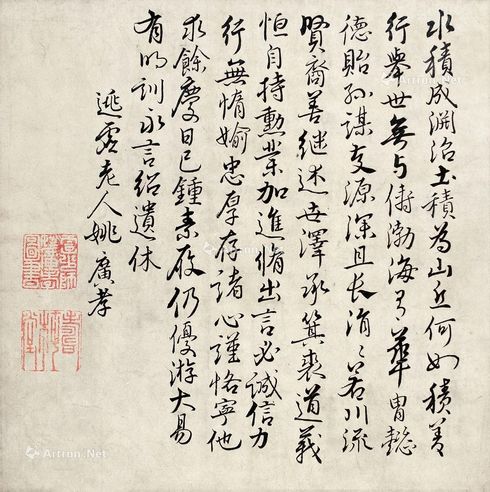 水積成淵治土積為山丘何如積善
行舉世無与儔渤海有華胄懿
德貽孫謀支源深且長涓〻若川流
賢裔善继述世澤承箕裘道義
恒自持勲業加進脩出言必誠信力
行無惰媮忠厚存諸心謹恪寧他
求餘慶日已鍾素履仍優游大易
有明訓永言紹遺休
逃虚老人姚廣孝
Artron.Net